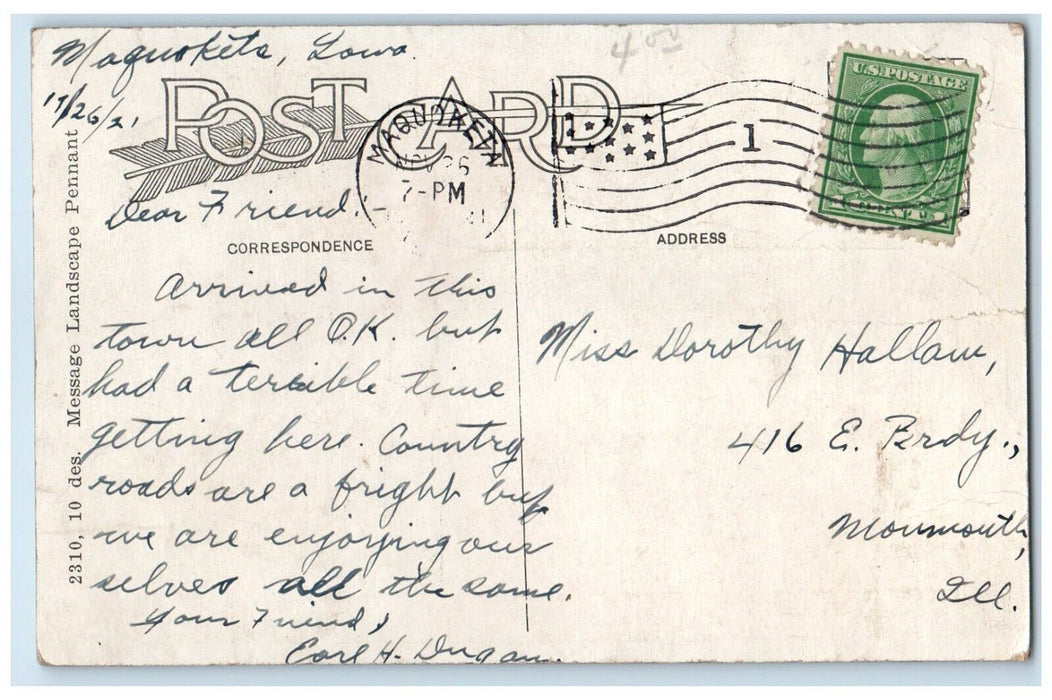 Maquoketa, Iowa.
11/26/21
4.00
POST CARD
MAQUOKETA
NOV 26
7-PM
1
U.S. POSTAGE
1 CENT 1
Dear Friend:-
CORRESPONDENCE
ADDRESS
Arrived in this
town all O.K. but
had a terrible time
getting here. Country
roads are a fright but
we are enjoying our
selves all the same.
Your Friend,
Earl H. Dugan.
Miss Dorothy Hallam,
416 E. Brdy.,
Monmouth,
Ill.
2310, 10 des. Message Landscape Pennant